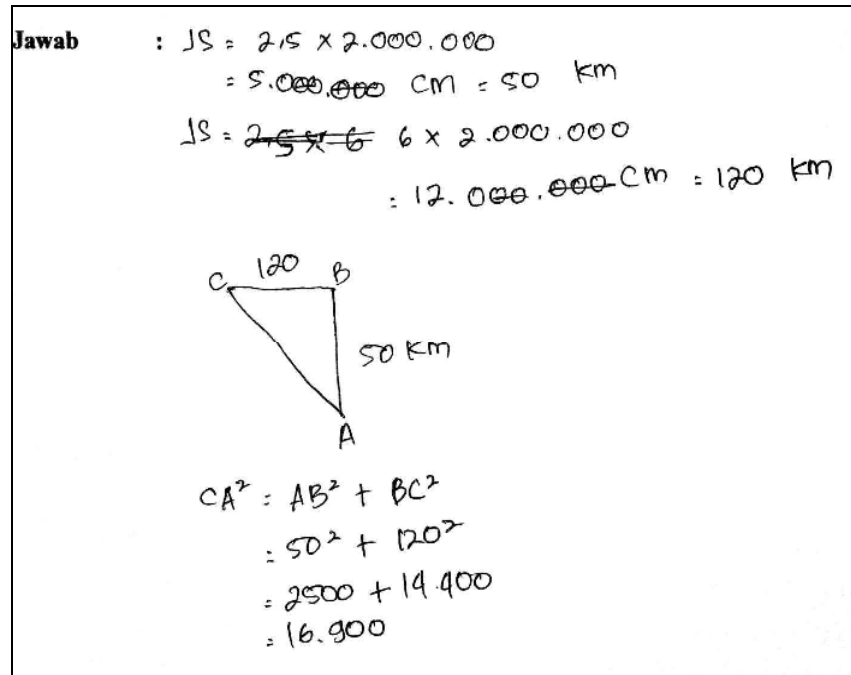 Jawab : JS = 2,5 × 2.000.000
= 5.000.000 cm = 50 km
JS = 2,5 × 6 6 × 2.000.000
= 12.000.000 cm = 120 km
C 120 B
50 km
A
CA² = AB² + BC²
= 50² + 120²
= 2500 + 14.400
= 16.900